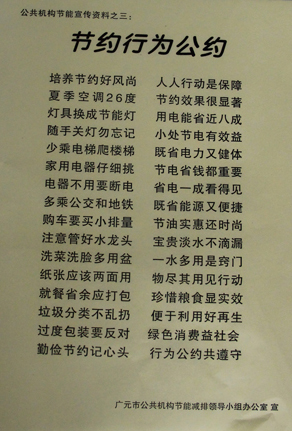 公共机构节能宣传资料之三：
节约行为公约
培养节约好风尚 人人行动是保障
夏季空调26度 节约效果很显著
灯具换成节能灯 用电能省近八成
随手关灯勿忘记 小处节电有效益
少乘电梯爬楼梯 既省电力又健体
家用电器仔细挑 节电省钱都重要
电器不用要断电 省电一成看得见
多乘公交和地铁 既省能源又便捷
购车要买小排量 节油实惠还时尚
注意管好水龙头 宝贵淡水不滴漏
洗菜洗脸多用盆 一水多用是窍门
纸张应该两面用 物尽其用见行动
就餐省余应打包 珍惜粮食显实效
垃圾分类不乱扔 便于利用好再生
过度包装要反对 绿色消费益社会
勤俭节约记心头 行为公约共遵守
广元市公共机构节能减排领导小组办公室 宣